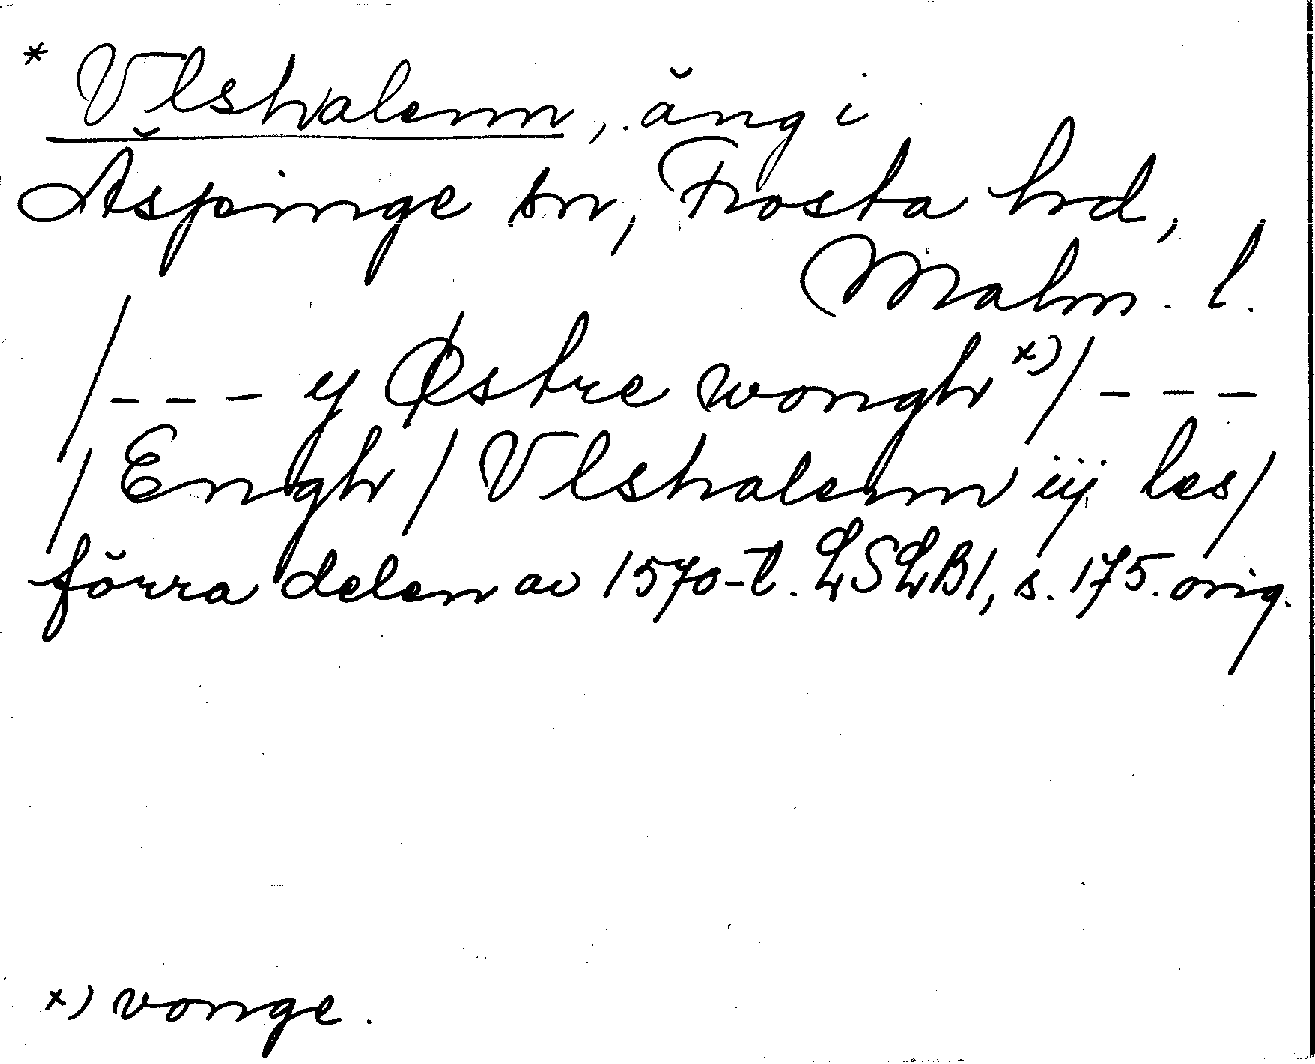 * Vlshalenn, äng i
Äspinge sn, Frosta hrd,
Malm. l.
/--- y Østre wongh x)/ ---
/Engh/ Vlshalenn iij les/
förra delen av 1570-t. LSLB1, s. 175. orig.
x) vonge.